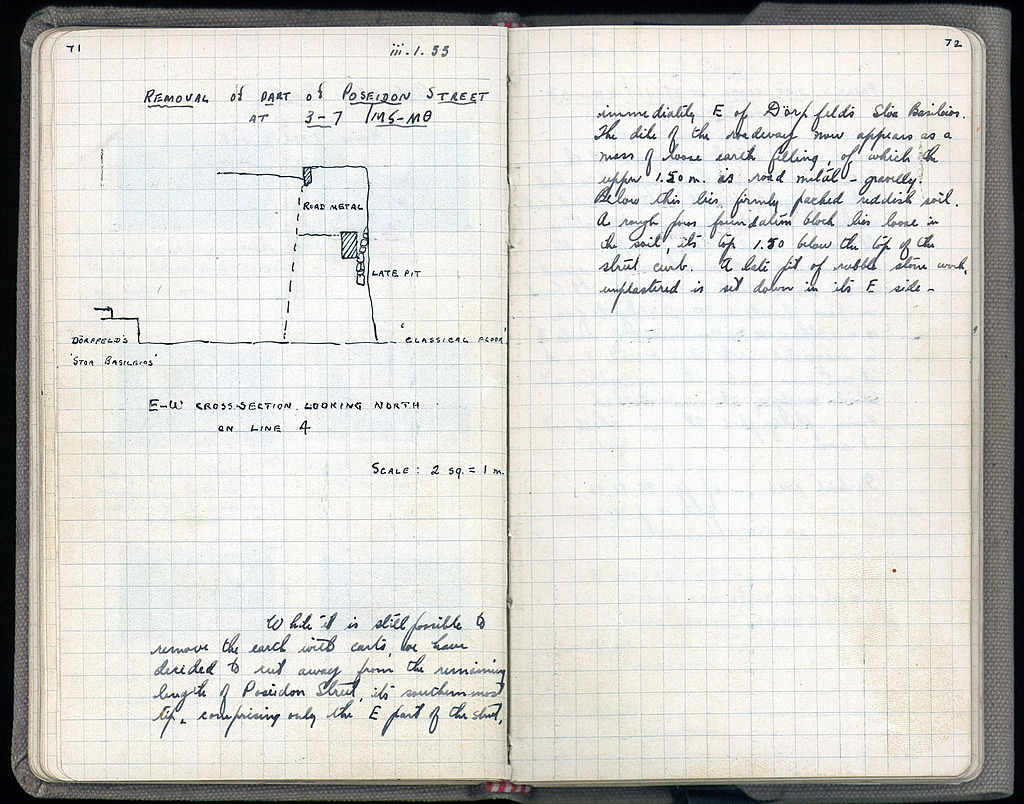 71
iii.1.35
REMOVAL of PART of POSEIDON STREET
AT 3-7 / ΜΣ-ΜΘ
ROAD METAL
LATE PIT
DÖRPFELD'S
'STOA BASILEIOS'
'CLASSICAL FLOOR'
E-W CROSS-SECTION, LOOKING NORTH
ON LINE 4
SCALE: 2 sq. = 1 m.
While it is still possible to
remove the earth with carts, we have
decided to cut away from the remaining
length of Poseidon Street, its southernmost
tip, comprising only the E part of the street,
72
immediately E of Dörpfeld's Stoa Basileios.
The dike of the roadway now appears as a
mass of loose earth filling, of which the
upper 1.50 m. is road metal - gravelly.
Below this lies firmly packed reddish soil.
A rough poros foundation block lies loose in
the soil, its top 1.50 below the top of the
street curb. A late pit of rubble stone work,
unplastered is set down in its E side -